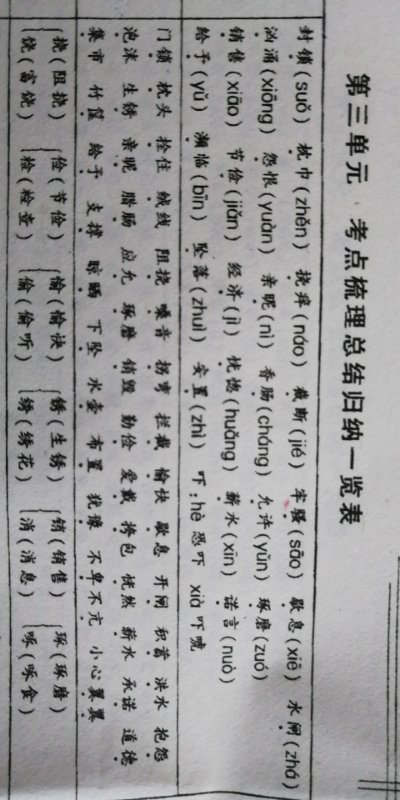 第三单元 考点梳理总结归纳一览表
封锁(suǒ) 枕巾(zhěn) 挠痒(náo) 截断(jié) 牢骚(sāo) 歇息(xiē) 水闸(zhá)
汹涌(xiōng) 怨恨(yuàn) 亲昵(nì) 香肠(cháng) 允许(yǔn) 琢磨(zuó)
销售(xiāo) 节俭(jiǎn) 经济(jì) 恍惚(huǎng) 薪水(xīn) 诺言(nuò)
给予(yǔ) 濒临(bīn) 坠落(zhuì) 安置(zhì) 吓:hè 恐吓 xià 吓唬
门锁 枕头 拴住 绒线 阻挠 嗓音 拐弯 拦截 愉快 歇息 开闸 积蓄 洪水 抱怨
泡沫 生锈 亲昵 腊肠 应允 琢磨 销毁 勤俭 爱戴 挎包 恍然 薪水 承诺 道德
集市 竹筐 给予 支撑 晾晒 下坠 水壶 布置 犹豫 不卑不亢 小心翼翼
挠(阻挠) 俭(节俭) 愉(愉快) 锈(生锈) 销(销售) 琢(琢磨)
饶(富饶) 检(检查) 偷(偷听) 绣(绣花) 消(消息) 啄(啄食)